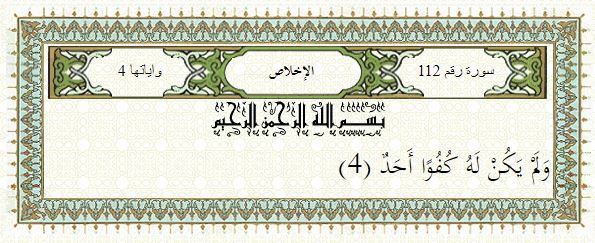 سورة رقم 112
الإخلاص
واياتها 4
بسم الله الرحمن الرحيم
وَلَمْ يَكُنْ لَهُ كُفُوًا أَحَدٌ (4)